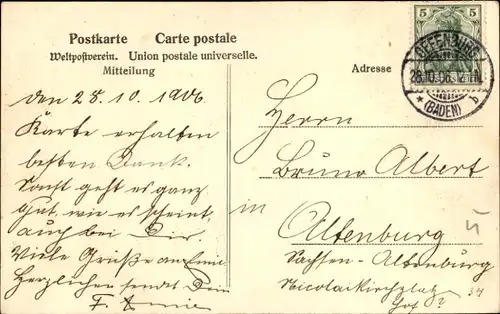 Postkarte Carte postale
Weltpostverein. Union postale universelle.
Mitteilung
Adresse
5 5
OFFENBURG
28.10.06. 12-1N.
* (BADEN) b
den 28. 10. 1906
Karte erhalten
besten Dank.
Sonst geht es ganz
gut, wie es scheint
auch bei Dir.
Viele Grüße an Emil
Herzlichen sendet Dein
F.
Herrn
Bruno Albert
in
Altenburg
Sachsen-Altenburg
Nicolaikirchplatz
Hof 2